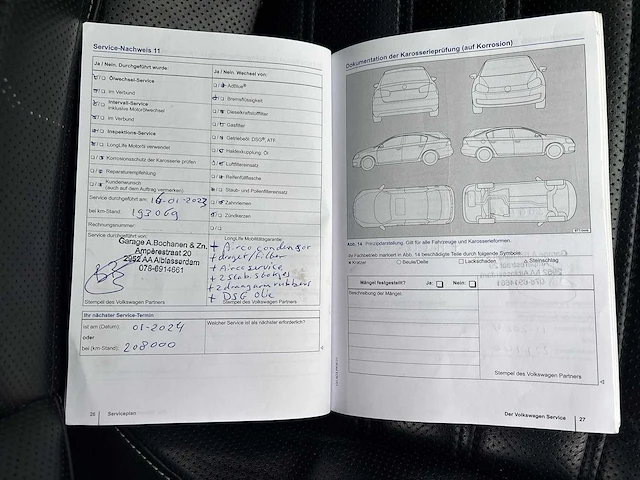 Service-Nachweis 11
Ja / Nein. Durchgeführt wurde
Ölwechsel-Service
im Verbund
Intervall-Service
inklusive Motorölwechsel
im Verbund
Inspektions-Service
LongLife Motoröl verwendet
Korrosionsschutz der Karosserie prüfen
Reparaturempfehlung
Kundenwunsch
(auch auf dem Auftrag vermerken)
Service durchgeführt am: 16-01-2023
bei km-Stand: 193069
Rechnungsnummer:
Service durchgeführt von:
Garage A.Bochanen & Zn.
Ampèrestraat 20
2952 AA Alblasserdam
078-6914661
Stempel des Volkswagen Partners
Ja / Nein. Wechsel von:
AdBlue®
Bremsflüssigkeit
Dieselkraftstofffilter
Gasfilter
Getriebeöl: DSG®, ATF
Haldexkupplung: Öl
Luftfiltereinsatz
Reifenfüllflasche
Staub- und Pollenfiltereinsatz
Zahnriemen
Zündkerzen
LongLife Mobilitätsgarantie:
+ Airco condensor
+ droger/filter
+ Airco service
+ 2 stab. stokjes
+ 2 draagarmrubbers
+ DSG Olie
Stempel des Volkswagen Partners
Ihr nächster Service-Termin
ist am (Datum): 01-2024
oder
bei (km-Stand): 208000
Welcher Service ist als nächster erforderlich?
26 Serviceplan
Dokumentation der Karosserieprüfung (auf Korrosion)
Abb. 14 Prinzipdarstellung. Gilt für alle Fahrzeuge und Karosserieformen.
Ihr Fachbetrieb markiert in Abb. 14 beschädigte Teile durch folgende Symbole:
× Kratzer ○ Beule/Delle □ Lackschaden △ Steinschlag
Mängel festgestellt? Ja: Nein:
Beschreibung der Mängel:
Stempel des Volkswagen Partners
Der Volkswagen Service 27